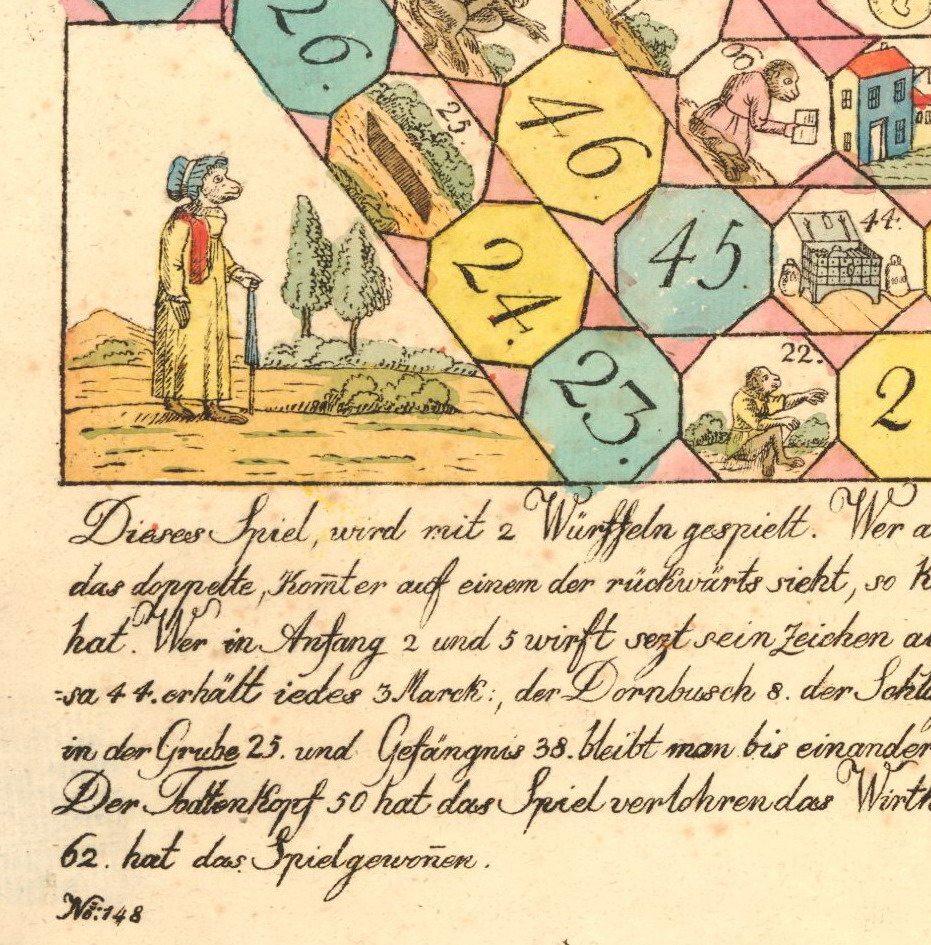 26.
25.
46
60
24.
45.
44.
23.
22.
2
Dieses Spiel, wird mit 2 Würffeln gespielt. Wer a
das doppelte, Kom̄t er auf einem der rückwärts sieht, so K
hat. Wer in Anfang 2 und 5 wirft sezt sein Zeichen au
=sa 44. erhält iedes 3 Marck:, der Dornbusch 8. der Schla
in der Grube 25. und Gefängnis 38. bleibt man bis einander
Der Todtenkopf 50 hat das Spiel verlohren das Wirth
62. hat das Spiel gewon̄en.
No: 148